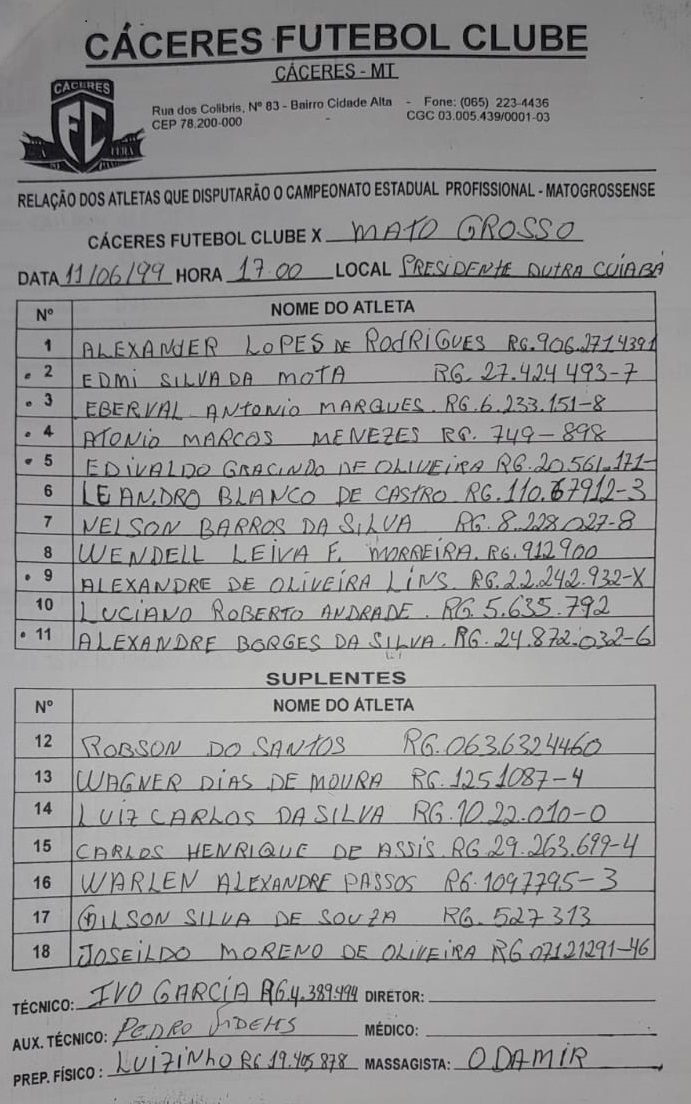 CÁCERES FUTEBOL CLUBE
CÁCERES - MT
CÁCERES
FC
Rua dos Colibris, Nº 83 - Bairro Cidade Alta - Fone: (065) 223-4436
CEP 78.200-000 - CGC 03.005.439/0001-03
RELAÇÃO DOS ATLETAS QUE DISPUTARÃO O CAMPEONATO ESTADUAL PROFISSIONAL - MATOGROSSENSE
CÁCERES FUTEBOL CLUBE X MATO GROSSO
DATA 11/06/99 HORA 17:00 LOCAL PRESIDENTE DUTRA CUIABÁ
Nº NOME DO ATLETA
1 ALEXANDER LOPES DE RODRIGUES RG.906.2714391
2 EDMI SILVA DA MOTA RG. 27.424 493-7
3 EBERVAL ANTONIO MARQUES. RG.6.233.151-8
4 ATONIO MARCOS MENEZES RG. 749-898
5 EDIVALDO GRACINDO DE OLIVEIRA RG.20.561.171-
6 LEANDRO BLANCO DE CASTRO RG.110.67912-3
7 NELSON BARROS DA SILVA RG.8.228.027-8
8 WENDELL LEIVA F. MORREIRA. RG.912900
9 ALEXANDRE DE OLIVEIRA LINS. RG.22.242.932-X
10 LUCIANO ROBERTO ANDRADE. RG.5.635.792
11 ALEXANDRE BORGES DA SILVA. RG.24.872.032-6
SUPLENTES
Nº NOME DO ATLETA
12 ROBSON DO SANTOS RG.063.6324460
13 WAGNER DIAS DE MOURA RG.1251087-4
14 LUIZ CARLOS DA SILVA RG.10.22.010-0
15 CARLOS HENRIQUE DE ASSIS. RG.29.263.699-4
16 WARLEN ALEXANDRE PASSOS RG.1097795-3
17 GILSON SILVA DE SOUZA RG. 527313
18 JOSEILDO MORENO DE OLIVEIRA RG 07121291-46
TÉCNICO: IVO GARCIA RG.4.389.494 DIRETOR:
AUX. TÉCNICO: PEDRO MÉDICO:
PREP. FÍSICO: LUIZINHO RG 19.405 878 MASSAGISTA: ODAMIR